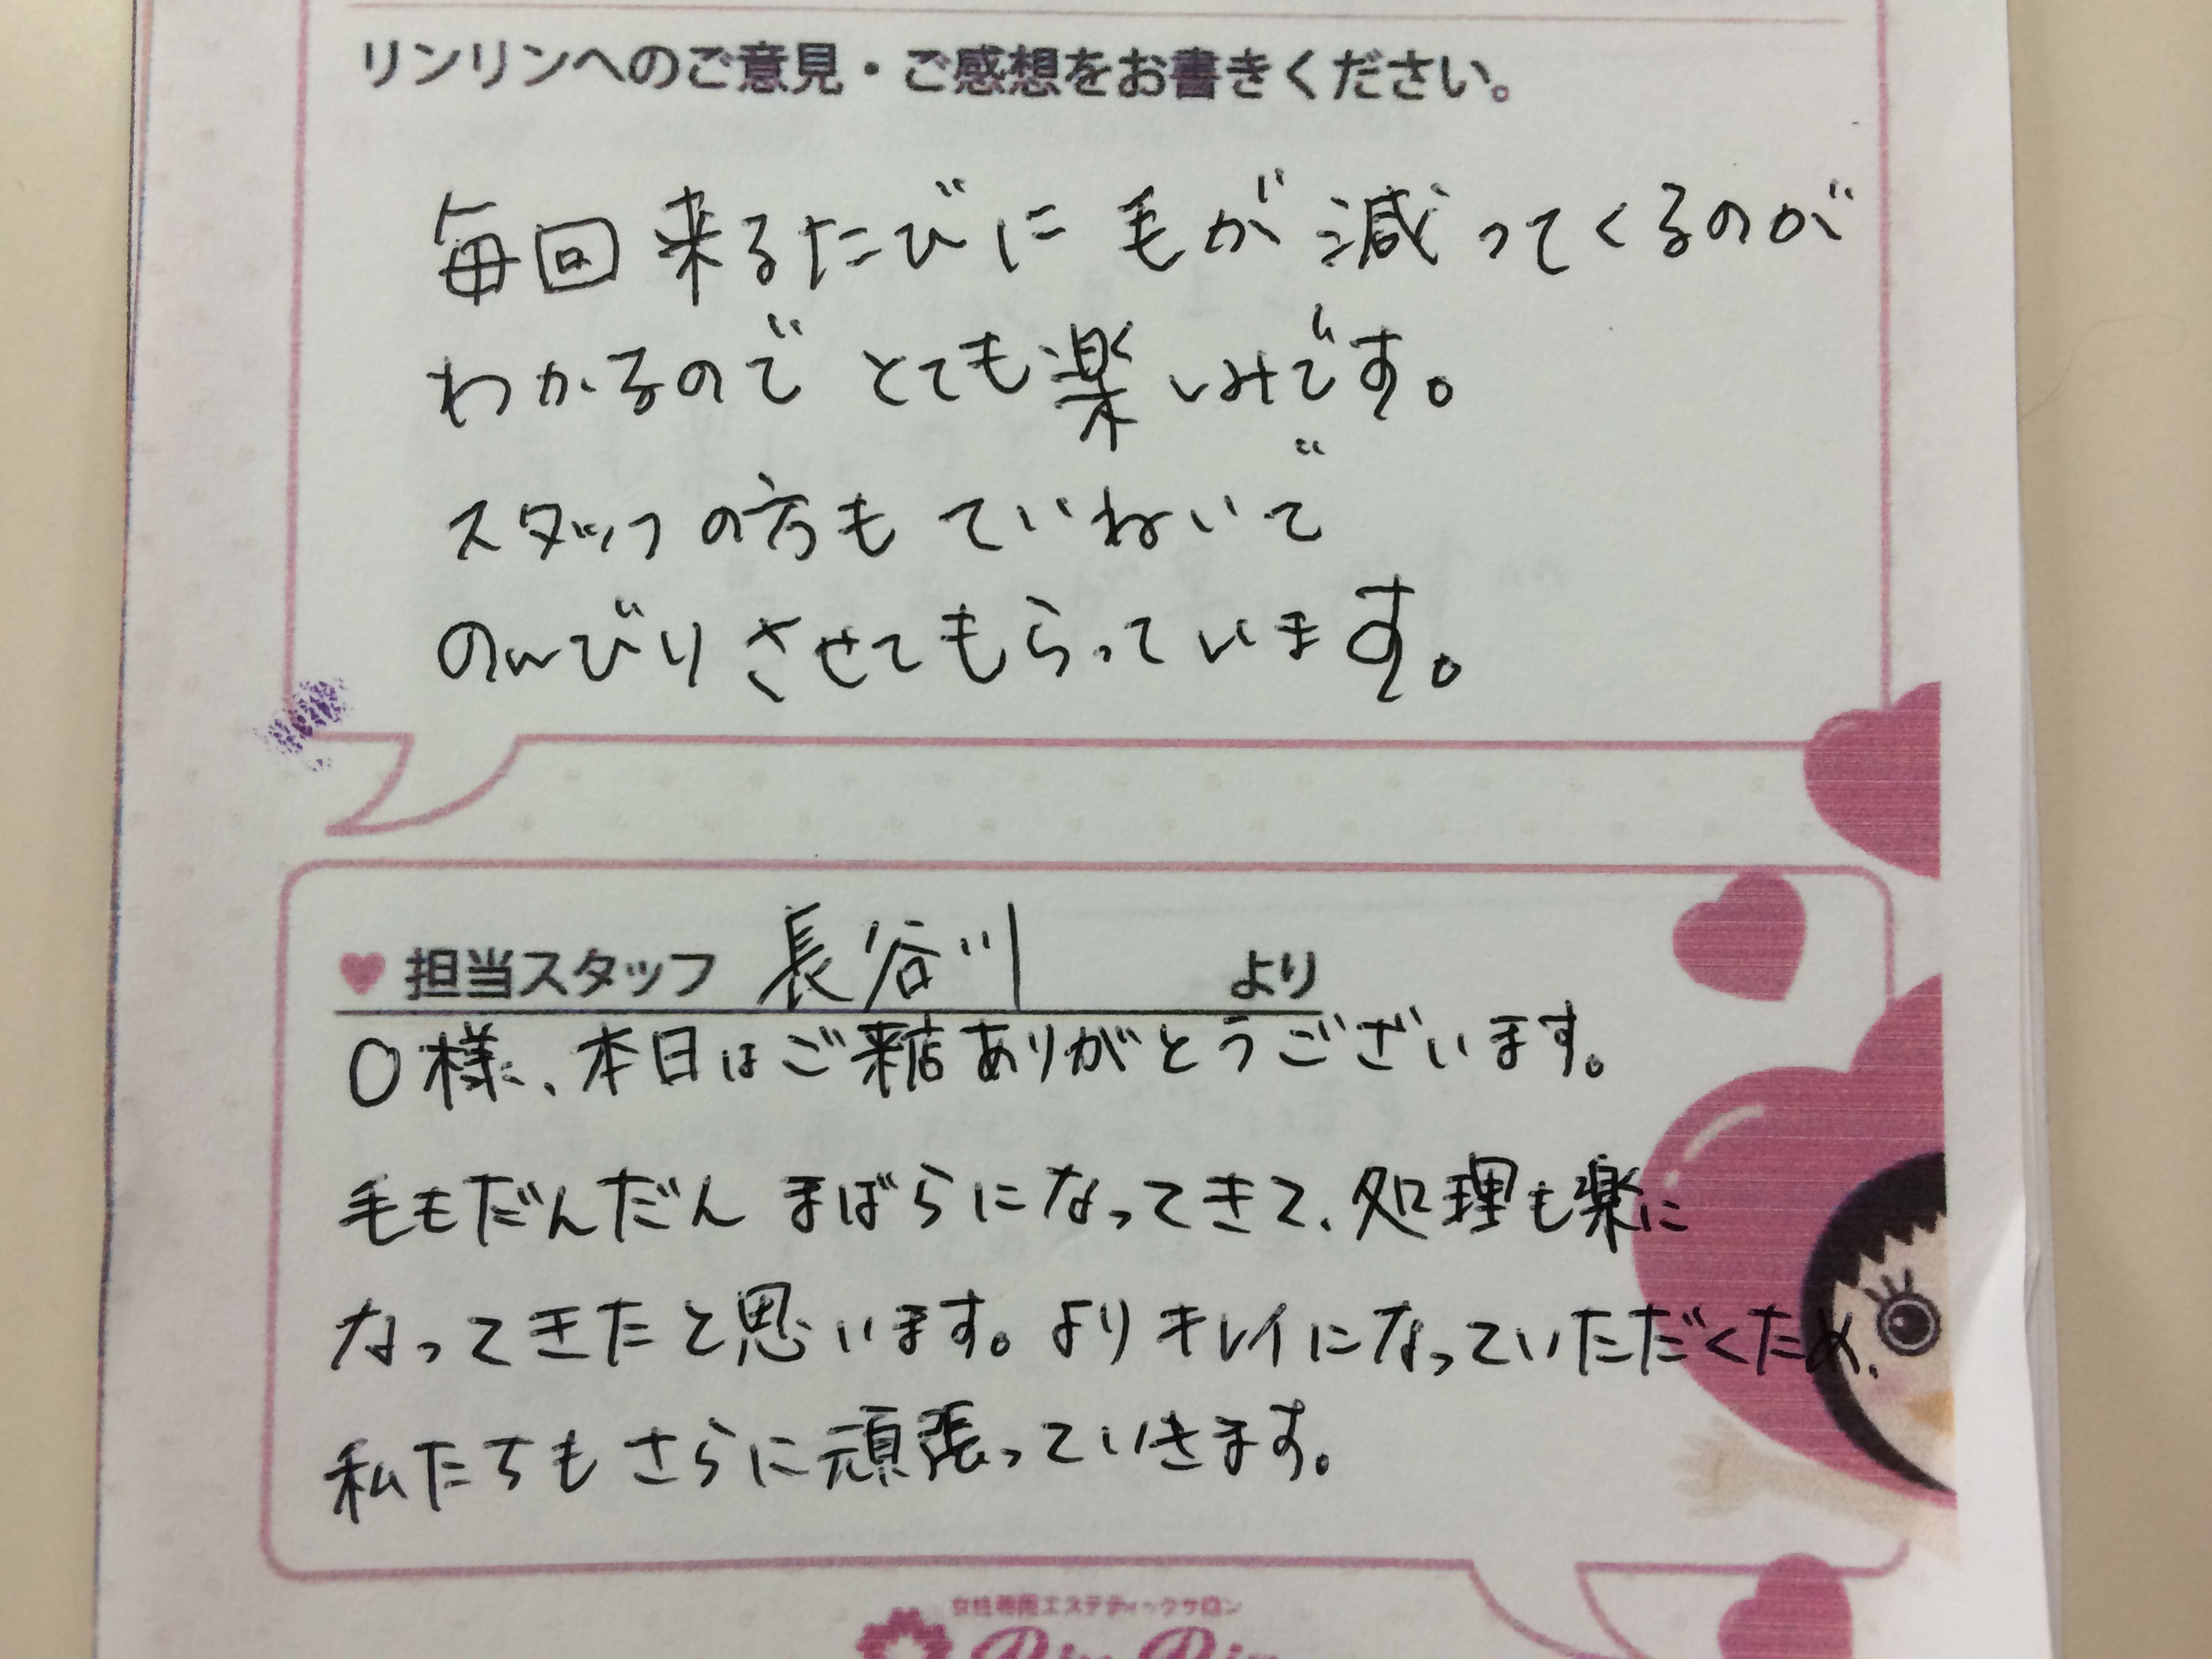 リンリンへのご意見・ご感想をお書きください。
毎回来るたびに毛が減ってくるのが
わかるのでとても楽しみです。
スタッフの方もていねいで
のんびりさせてもらっています。
♥担当スタッフ 長谷川 より
O様、本日はご来店ありがとうございます。
毛もだんだんまばらになってきて、処理も楽に
なってきたと思います。よりキレイになっていただくため、
私たちもさらに頑張っていきます。
女性専用エステティックサロン
Rin Rin